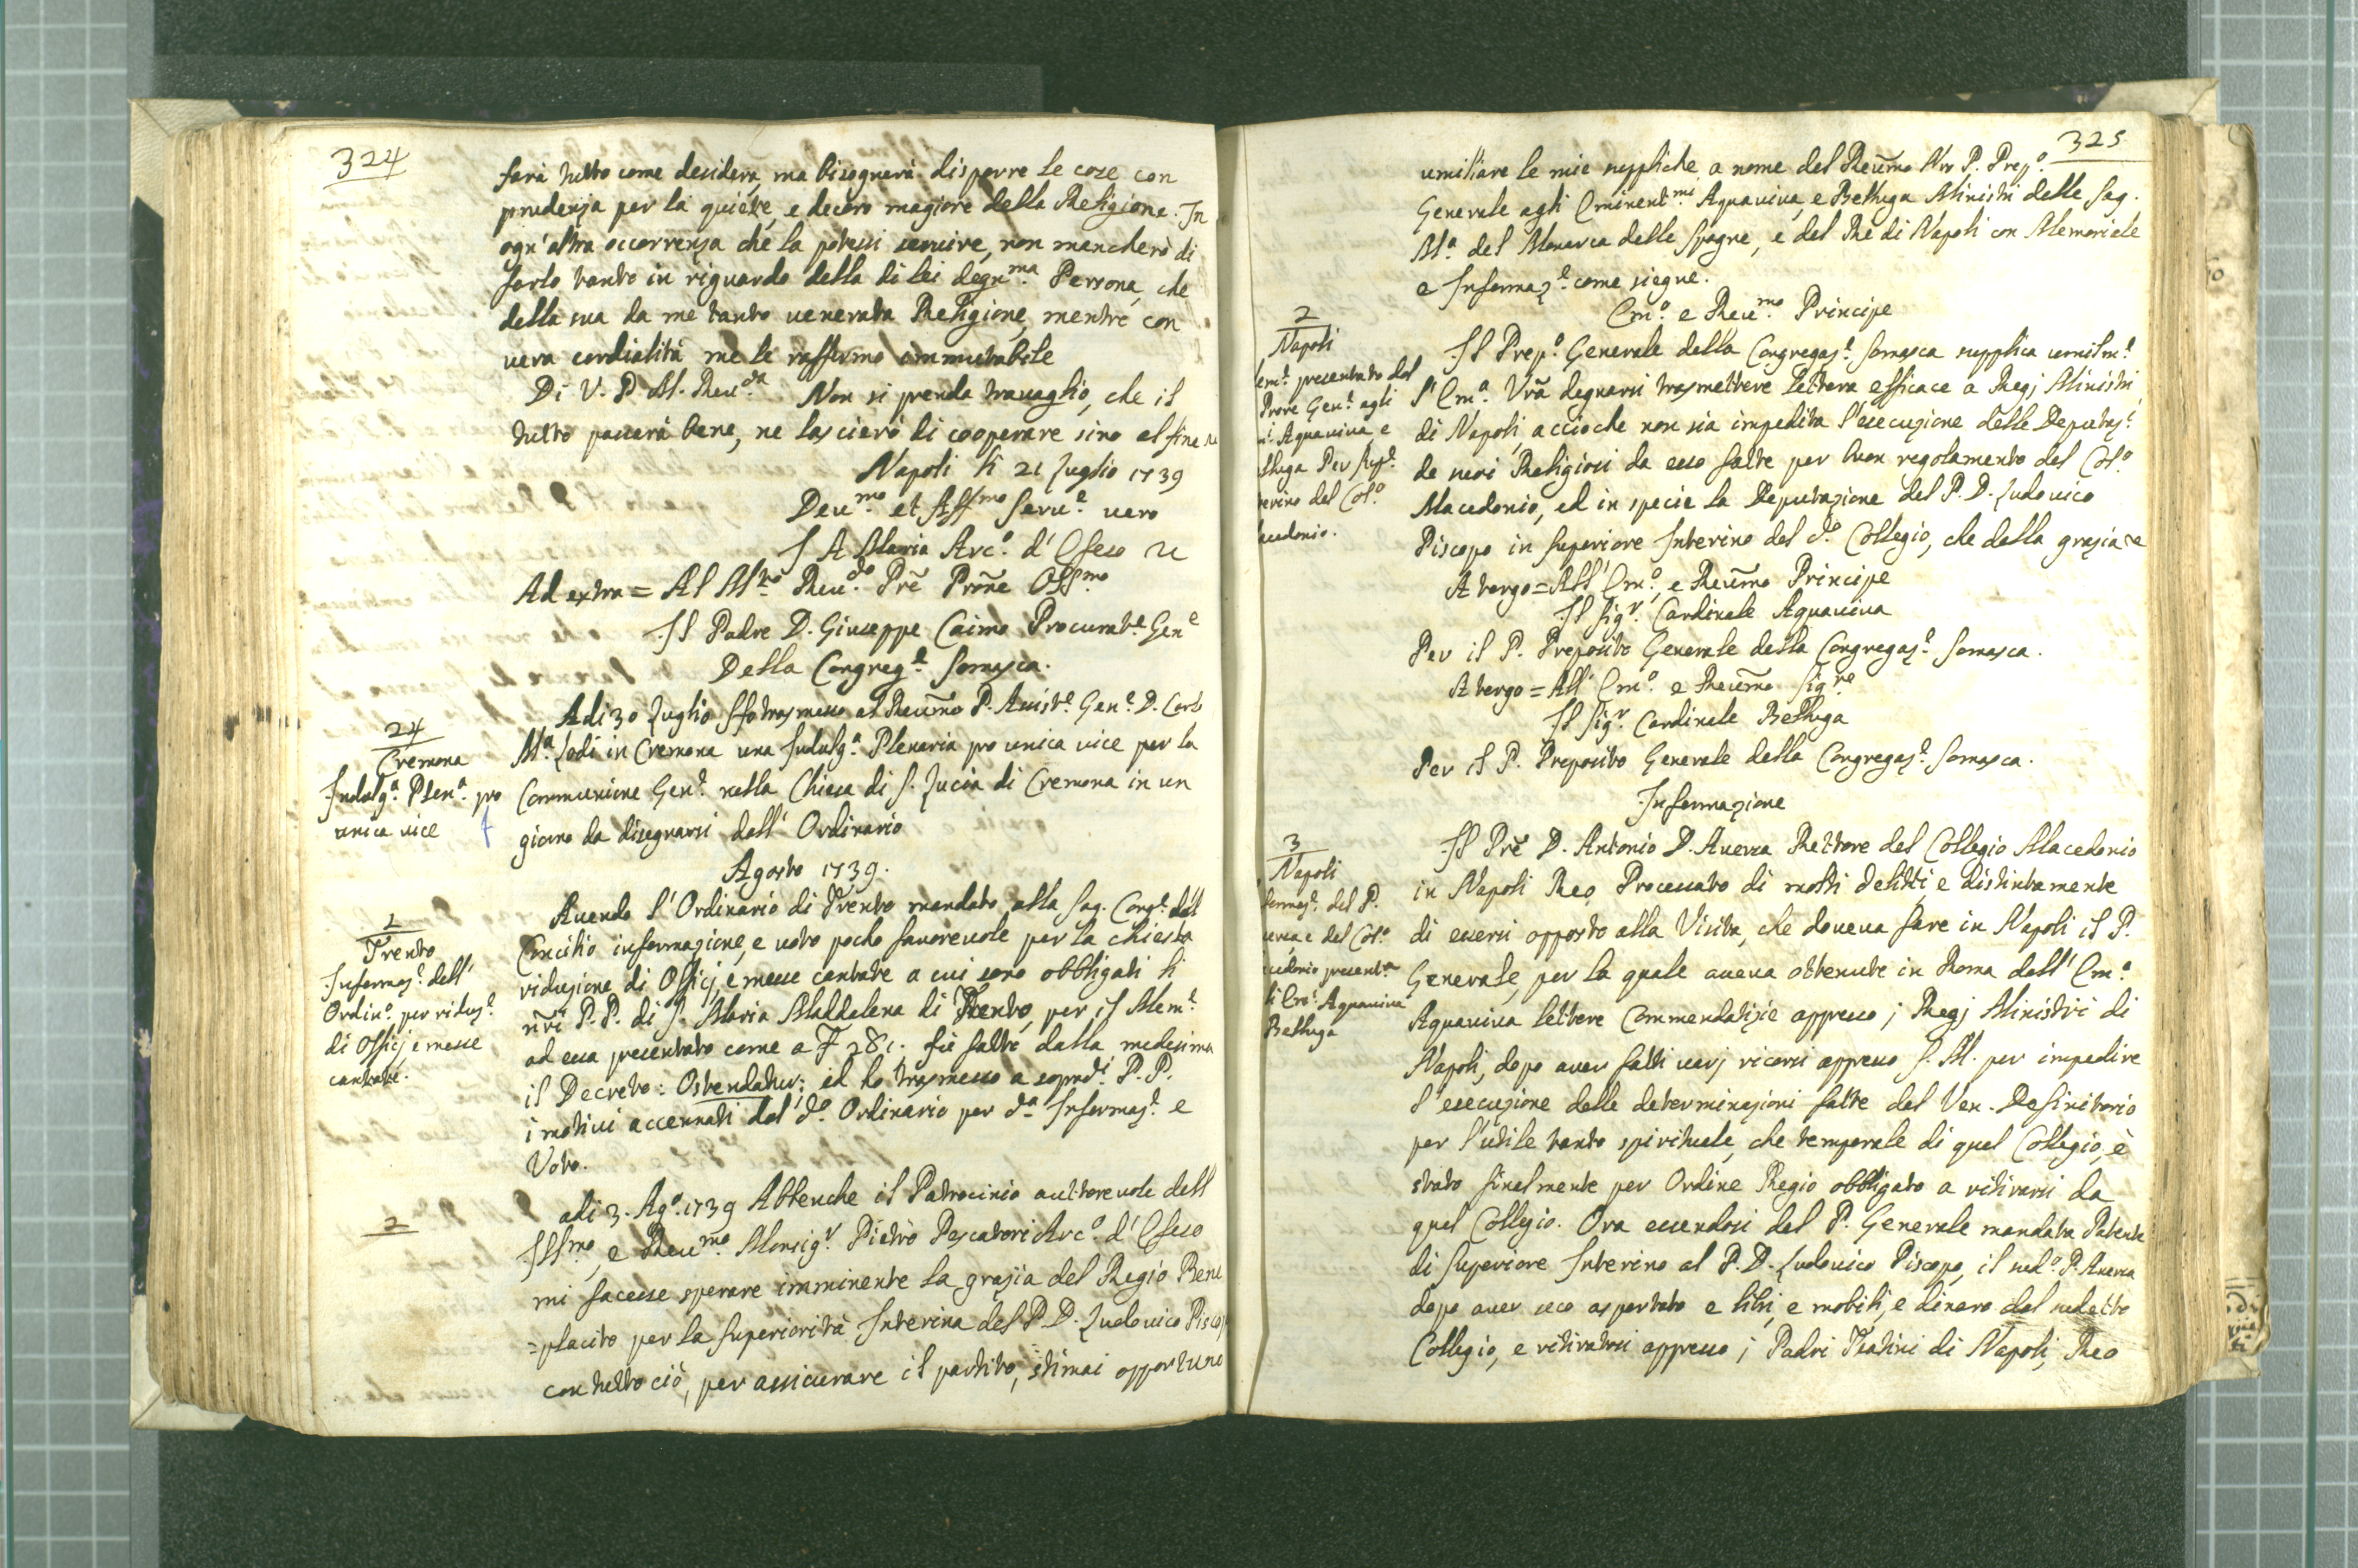 324
farà tutto come desidera, ma bisognerà disporre le cose con
prudenza per la quiete, e decoro magiore della Religione. In
ogn'altra occorrenza che la potessi servire, non mancherò di
farlo tanto in riguardo della di lei degn.ma Persona, che
della sua da me tanto venerata Religione, mentre con
vera cordialità me le raffermo immutabile
Di V. P. M. Reu.da Non si prenda travaglio, che il
tutto passerà bene, ne lascierò di cooperare sino al fine
Napoli li 21 Luglio 1739
Deu.mo et Aff.mo Seru.e vero
A Maria Arc.o d'Efeso
Ad extra = Al M.to Reu.do Prē Prōne Oss.mo
Il Padre D. Giuseppe Caimo Procurat.e Gen.e
Della Congreg.e Somasca.
24
Cremona
Indulg.a Plen.a pro
unica vice
Adi 30 Luglio Hò trasmesso al Reūmo P. Assist.e Gen.e D. Carlo
M.a Lodi in Cremona una Indulg.a Plenaria pro unica vice per la
Communione Gen.e nella Chiesa di S. Lucia di Cremona in un
giorno da disegnarsi dall' Ordinario
Agosto 1739.
1
Trento
Informaz.e dell'
Ordin.o per riduz.e
di Officj e messe
cantate.
Auendo l'Ordinario di Trento mandato alla Sag. Cong.e del
Concilio informazione, e voto poche fauoreuole per la chiesta
riduzione di Officj, e messe cantate a cui sono obbligati li
nr̄i P.P. di S. Maria Maddalena di Trento, per il Mem.e
ad essa presentato come a F 281. fù fatto dalla medesima
il Decreto: Ostendatur; ed ho trasmesso a soprad.i P.P.
i motiui accennati dal d.o Ordinario per d.a Informaz.e e
Voto.
2
adi 3. Ag.o 1739 Abbenche il Patrocinio auttoreuole dell
Ill.mo, e Reu.mo Monsig.r Pietro Pescatori Arc.o d'Efeso
mi facesse sperare imminente la grazia del Regio Bene
=placito per la Superiorità Interina del P. D. Ludouico Piscop
con tutto ciò, per assicurare il partito, stimai opportuno
325
umiliare le mie suppliche a nome del Reūmo Nr̄o P. Prep.o
Generale agli Eminent.mi Aquauiua, e Belluga Ministri delle Sag.
M.a del Monarca delle Spagne, e del Re di Napoli con Memoriale
e Informaz.e come siegue.
Em.o e Reu.mo Principe
2
Napoli
em.e presentato dal
Prore Gen.e agli
Aquauiua, e
lluga Per Sup.e
terino del Col.o
acedonio.
Il Prep.o Generale della Congregaz.e Somasca supplica umilm.e
l'Em.a Vr̄a degnarsi trasmettere lettera efficace a Regj Ministri
di Napoli, accioche non sia impedita l'esecuzione delle Deputaz.e
de suoi Religiosi da esso fatte per buon regolamento del Col.o
Macedonio, ed in specie la Deputazione del P. D. Ludouico
Piscopo in Superiore Interino del d.o Collegio, che della grazia
A tergo = All' Em.o, e Reūmo Principe
Il Sig.r Cardinale Aquauiua
Per il P. Preposito Generale della Congregaz.e Somasca.
A tergo = All' Em.o e Reūmo Sig.re
Il Sig.r Cardinale Belluga
Per il P. Preposito Generale della Congregaz.e Somasca.
Informazione
3
Napoli
formaz.e del P.
uersa e del Col.o
cedonio present.a
Aquauiua
Belluga
Il Prē D. Antonio D. Auersa Rettore del Collegio Macedonio
in Napoli Reo Processato di molti delitti, e distintamente
di essersi opposto alla Visita, che doueua fare in Napoli il P.
Generale, per la quale aueua ottenute in Roma dall' Em.o
Aquauiua lettere Commendatizie appresso i Regj Ministri di
Napoli, dopo auer fatti varj ricorsi appresso S. M. per impedire
l'esecuzione delle determinazioni fatte dal Ven. Definitorio
per l'utile tanto spirituale, che temporale di quel Collegio, è
stato finalmente per Ordine Regio obbligato a ritirarsi da
quel Collegio. Ora essendosi dal P. Generale mandata Patente
di Superiore Interino al P. D. Ludouico Piscopo, il sud.o P. Auersa
dopo auer seco asportato e libri, e mobili, e dinaro dal sudetto
Collegio, e ritiratosi appresso i Padri Teatini di Napoli, Reo